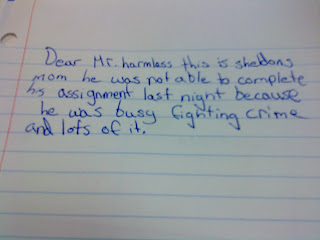 Dear Mr. harmless this is sheldons
mom he was not able to complete
his assignment last night because
he was busy fighting crime
and lots of it.